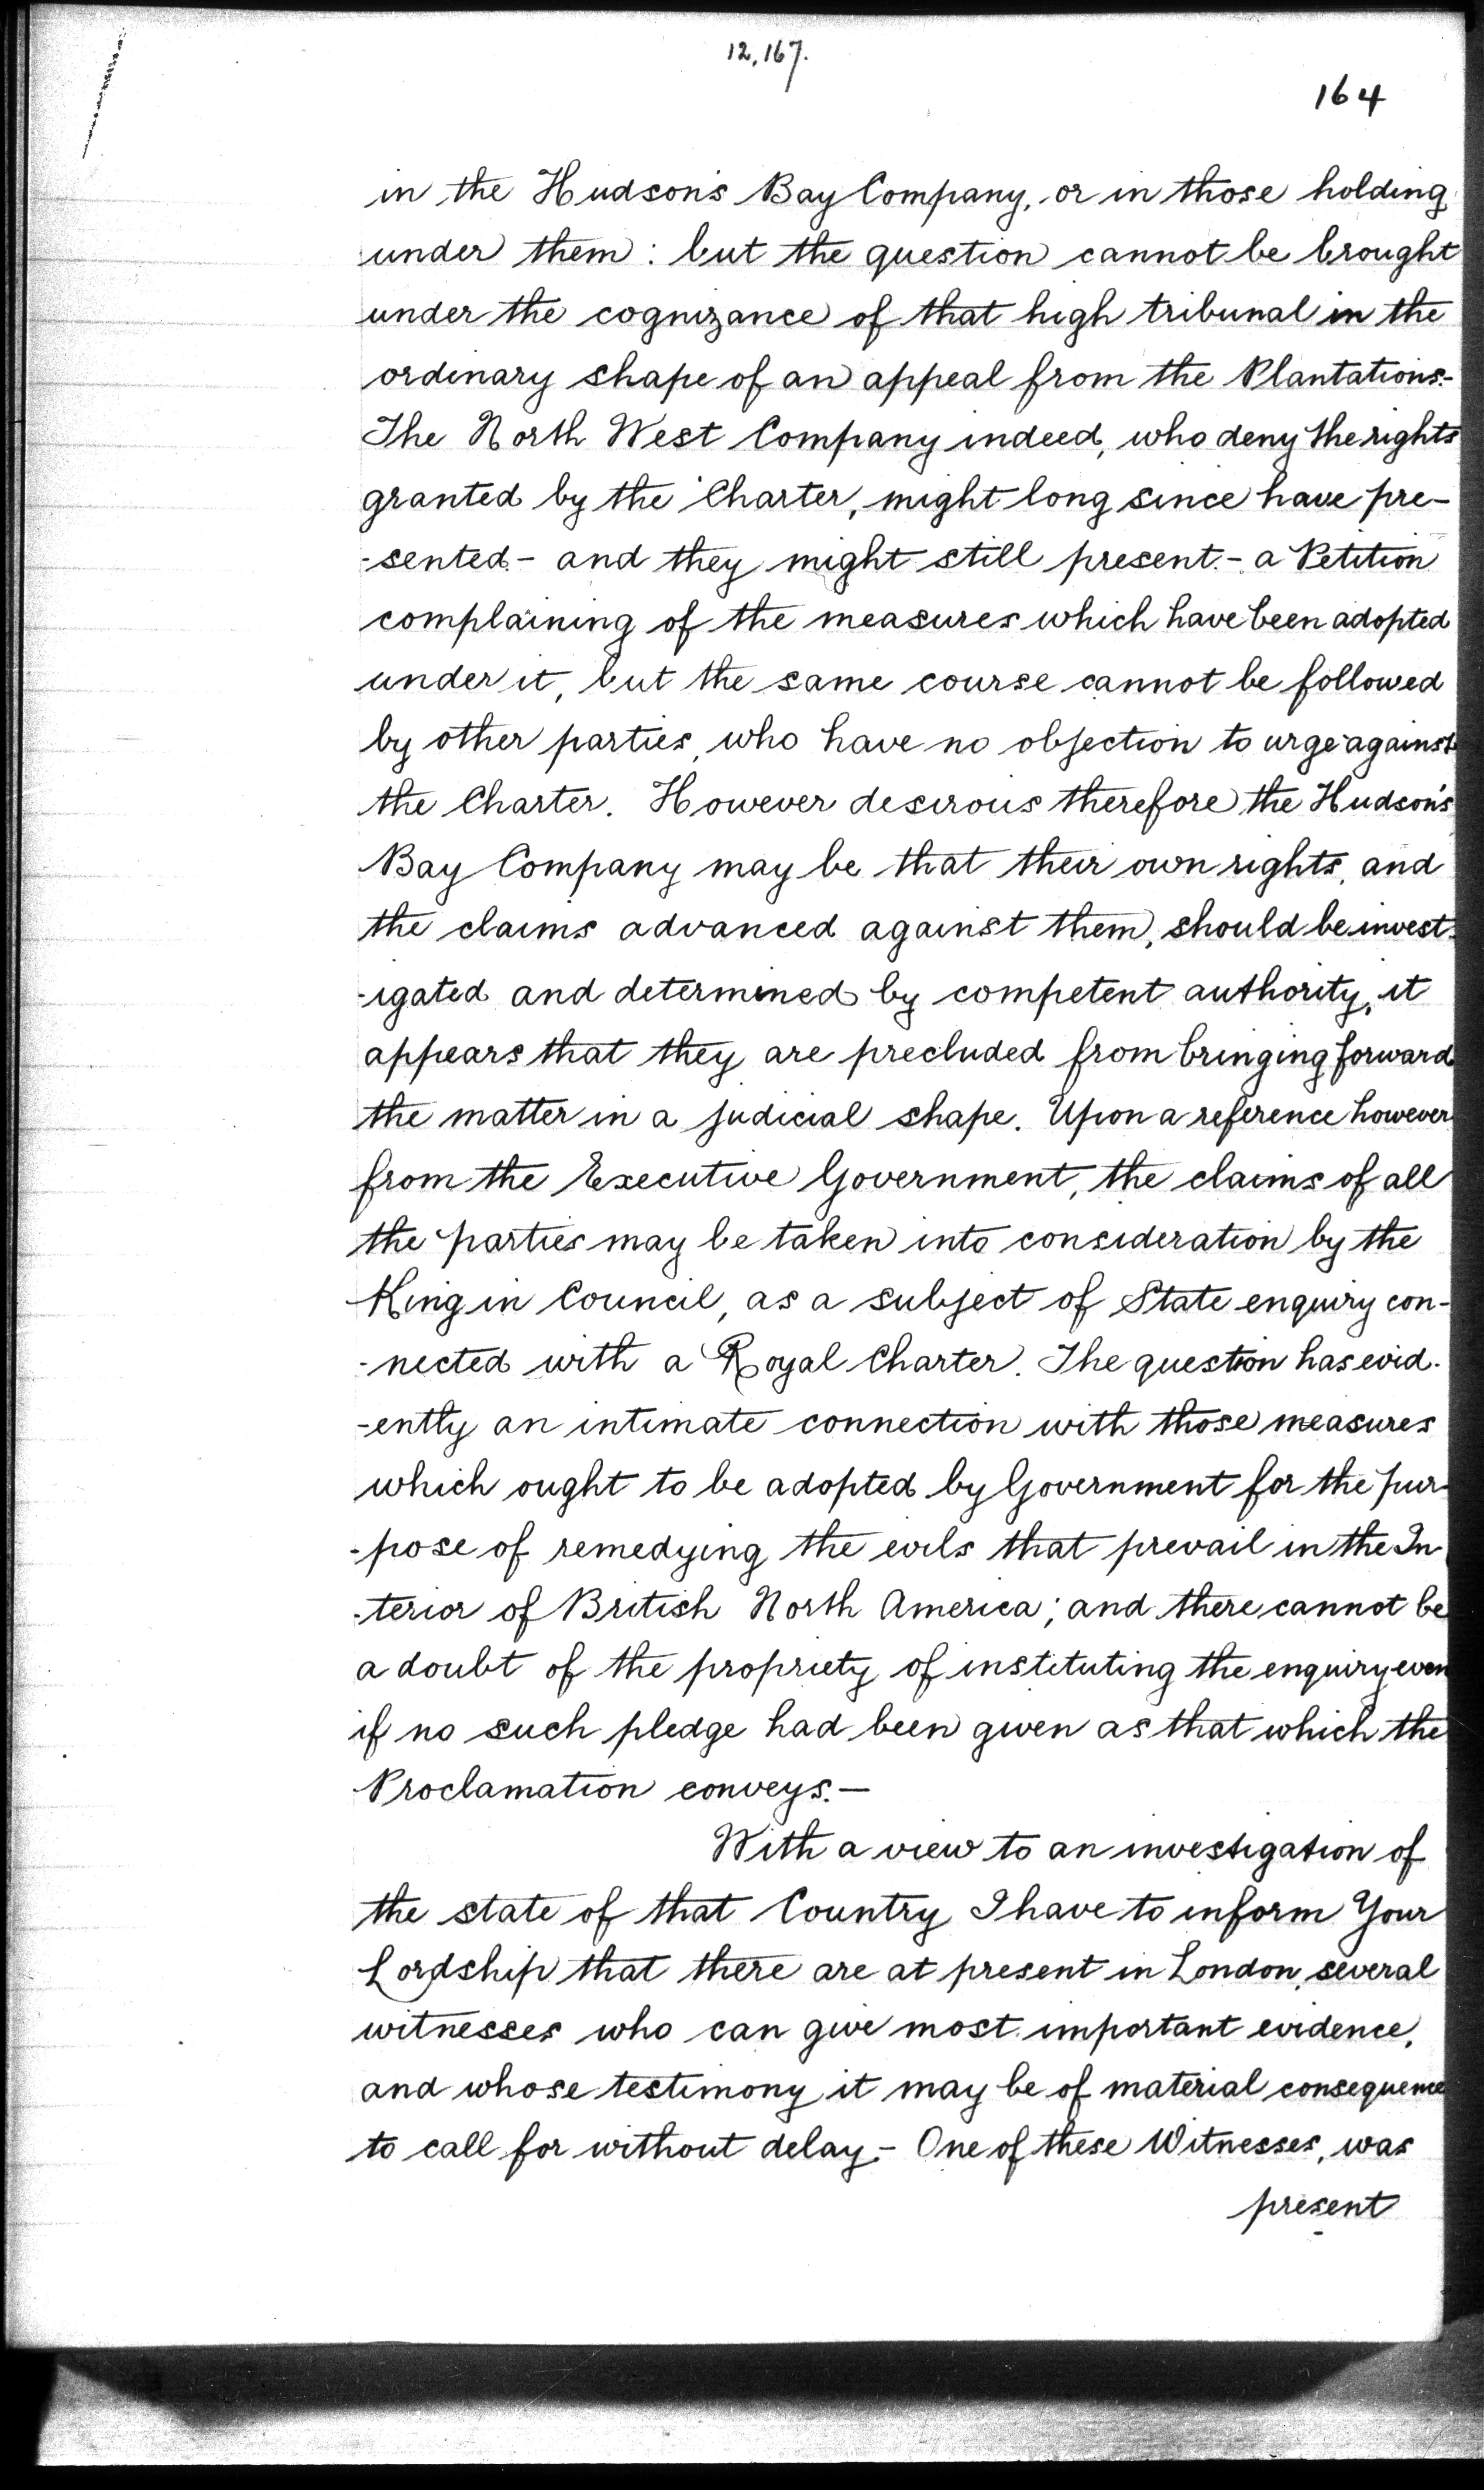 12,167.
164
in the Hudson's Bay Company, or in those holding
under them : but the question cannot be brought
under the cognizance of that high tribunal in the
ordinary shape of an appeal from the Plantations.-
The North West Company indeed, who deny the rights
granted by the Charter, might long since have pre-
-sented - and they might still present - a Petition
complaining of the measures which have been adopted
under it, but the same course cannot be followed
by other parties, who have no objection to urge against
the Charter. However desirous therefore the Hudson's
Bay Company may be that their own rights, and
the claims advanced against them, should be invest-
-igated and determined by competent authority, it
appears that they are precluded from bringing forward
the matter in a judicial shape. Upon a reference however
from the Executive Government, the claims of all
the parties may be taken into consideration by the
King in Council, as a subject of State enquiry con-
-nected with a Royal Charter. The question has evid-
-ently an intimate connection with those measures
which ought to be adopted by Government for the pur-
-pose of remedying the evils that prevail in the In-
-terior of British North America; and there cannot be
a doubt of the propriety of instituting the enquiry even
if no such pledge had been given as that which the
Proclamation conveys. -
With a view to an investigation of
the state of that Country I have to inform Your
Lordship that there are at present in London, several
witnesses who can give most important evidence,
and whose testimony it may be of material consequence
to call for without delay. - One of these Witnesses, was
present